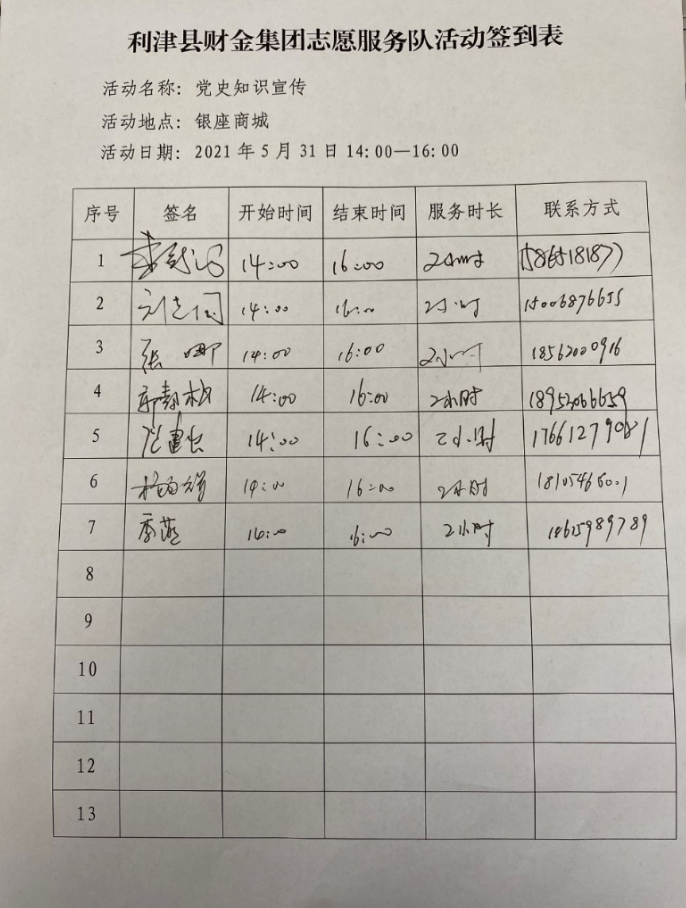 利津县财金集团志愿服务队活动签到表
活动名称：党史知识宣传
活动地点：银座商城
活动日期：2021 年 5 月 31 日 14:00—16:00
序号 签名 开始时间 结束时间 服务时长 联系方式
1 14:00 16:00 2小时
2 14:00 16:00 2小时 15006876655
3 张娜 14:00 16:00 2小时 18562000916
4 14:00 16:00 2小时
5 14:00 16:00 2小时 17661279081
6 14:00 16:00 2小时
7 季燕 14:00 16:00 2小时
8
9
10
11
12
13